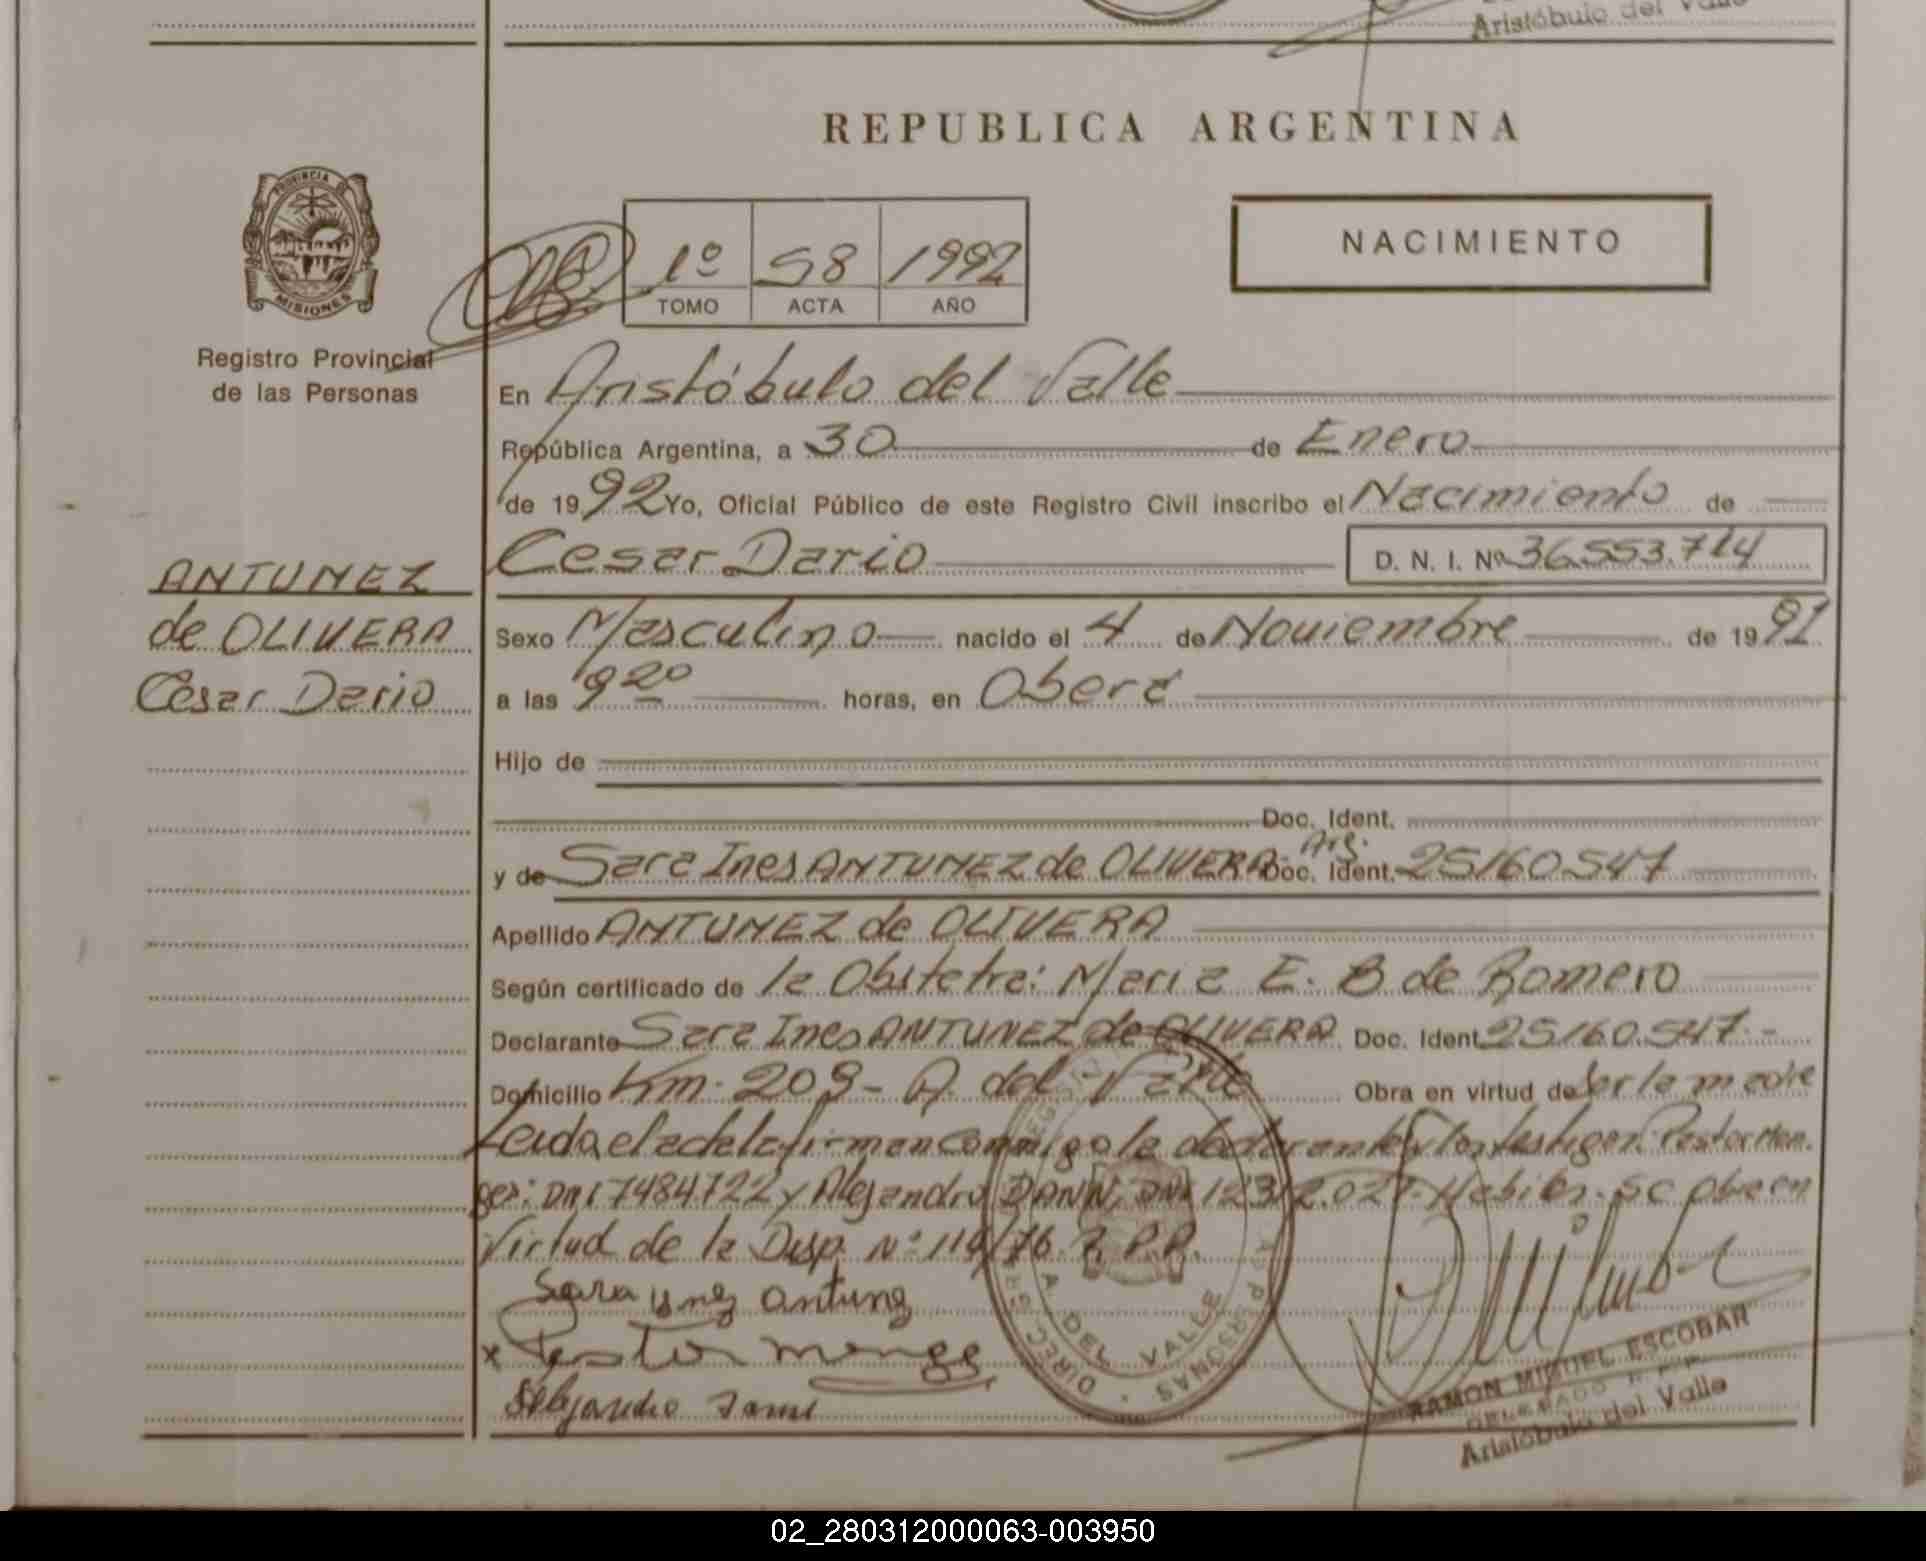 Aristóbulo del Valle
REPUBLICA ARGENTINA
PROVINCIA DE
MISIONES
Registro Provincial
de las Personas
1º 58 1992
TOMO ACTA AÑO
NACIMIENTO
En Aristóbulo del Valle
República Argentina, a 30 de Enero
de 1992 Yo, Oficial Público de este Registro Civil inscribo el Nacimiento de
Cesar Dario D. N. I. Nº 36.553.714
ANTUNEZ
de OLIVERA
Cesar Dario
Sexo Masculino nacido el 4 de Noviembre de 1991
a las 9 20 horas, en Oberá
Hijo de
Doc. Ident.
y de Sara Ines ANTUNEZ de OLIVERA Doc. Ident. Arg. 25160547
Apellido ANTUNEZ de OLIVERA
Según certificado de la Obstetra: Maria E. B de Romero
Declarante Sara Ines ANTUNEZ de OLIVERA Doc. Ident. 25160.547.-
Domicilio Km. 209 - A. del Valle Obra en virtud de Ser la madre
Leida el acta la firman conmigo la declarante y los testigos: Pastor Men.
ges: DNI 7484722 y Alejandro DANN, DNI Habiles. Se obra en
Virtud de la Disp. Nº 116/76 R.P.P.
Sara ynez antunez
x Pastor menge
Alejandro Dann
A. DEL VALLE
RAMON MIGUEL ESCOBAR
DELEGADO R.P.P.
Aristóbulo del Valle
02_280312000063-003950